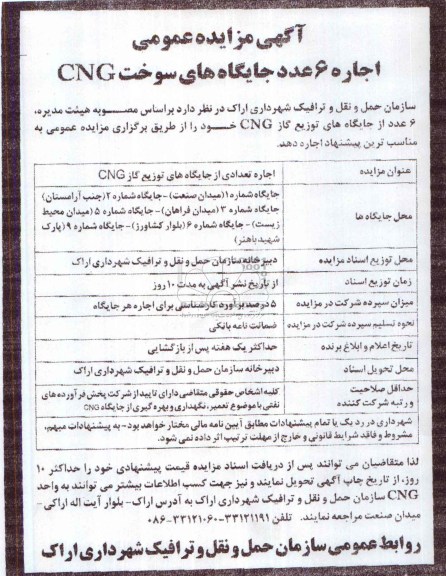 آگهی مزایده عمومی
اجاره ۶ عدد جایگاه های سوخت CNG
سازمان حمل و نقل و ترافیک شهرداری اراک در نظر دارد براساس مصوبه هیئت مدیره،
۶ عدد از جایگاه های توزیع گاز CNG خود را از طریق برگزاری مزایده عمومی به
مناسب ترین پیشنهاد اجاره دهد.
عنوان مزایده
اجاره تعدادی از جایگاه های توزیع گاز CNG
محل جایگاه ها
جایگاه شماره ۱(میدان صنعت)- جایگاه شماره ۲(جنب آرامستان)
جایگاه شماره ۳ (میدان فراهان)- جایگاه شماره ۵ (میدان محیط
زیست)- جایگاه شماره ۶ (بلوار کشاورز)- جایگاه شماره ۹ (پارک
شهید باهنر)
محل توزیع اسناد مزایده
دبیرخانه سازمان حمل و نقل و ترافیک شهرداری اراک
زمان توزیع اسناد
از تاریخ نشر آگهی به مدت ۱۰ روز
میزان سپرده شرکت در مزایده
۵ درصد برآورد کارشناسی برای اجاره هر جایگاه
نحوه تسلیم سپرده شرکت در مزایده
ضمانت نامه بانکی
تاریخ اعلام و ابلاغ برنده
حداکثر یک هفته پس از بازگشایی
محل تحویل اسناد
دبیرخانه سازمان حمل و نقل و ترافیک شهرداری اراک
حداقل صلاحیت
و رتبه شرکت کننده
کلیه اشخاص حقوقی متقاضی دارای تاییداز شرکت پخش فرآورده های
نفتی با موضوع تعمیر، نگهداری و بهره گیری از جایگاه CNG
شهرداری در رد یک یا تمام پیشنهادات مطابق آیین نامه مالی مختار خواهد بود- به پیشنهادات مبهم،
مشروط و فاقد شرایط قانونی و خارج از مهلت ترتیب اثر داده نمی شود.
لذا متقاضیان می توانند پس از دریافت اسناد مزایده قیمت پیشنهادی خود را حداکثر ۱۰
روز، از تاریخ چاپ آگهی تحویل نمایند و نیز جهت کسب اطلاعات بیشتر می توانند به واحد
CNG سازمان حمل و نقل و ترافیک شهرداری اراک به آدرس اراک- بلوار آیت اله اراکی-
میدان صنعت مراجعه نمایند. تلفن ۳۳۱۲۱۱۹۱-۳۳۱۲۱۰۶۰-۰۸۶
روابط عمومی سازمان حمل و نقل و ترافیک شهرداری اراک